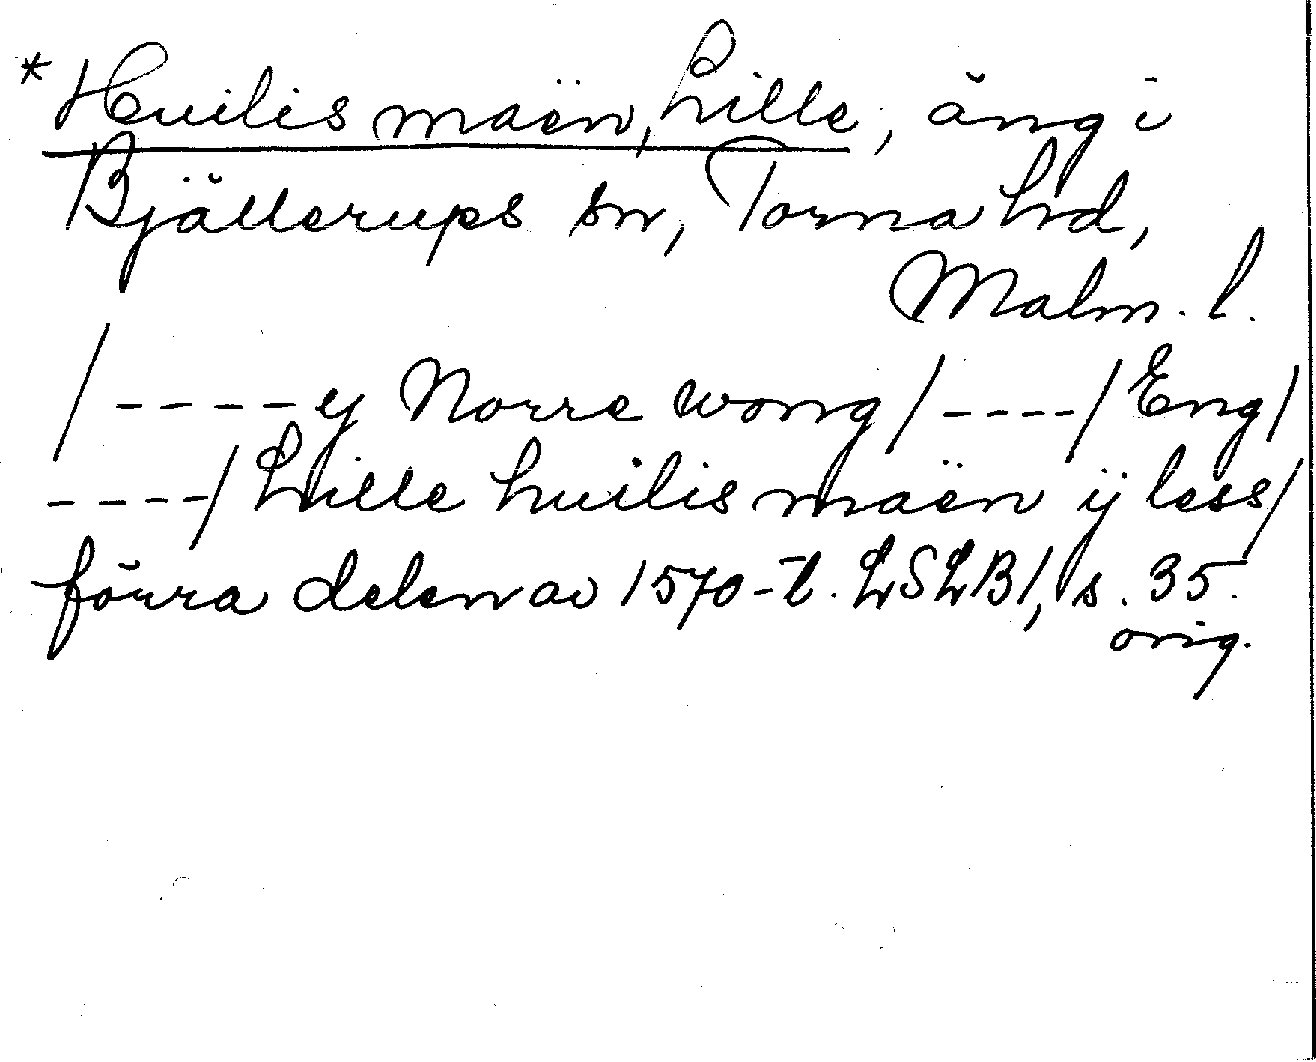 * Huilis maën, Lille, äng i
Bjällerups sn, Torna hd,
Malm. l.
/----y Norre wong/----/Eng/
----/Lille huilis maën ij less/
förra delen av 1570-t. LSLB1, s. 35.
orig.